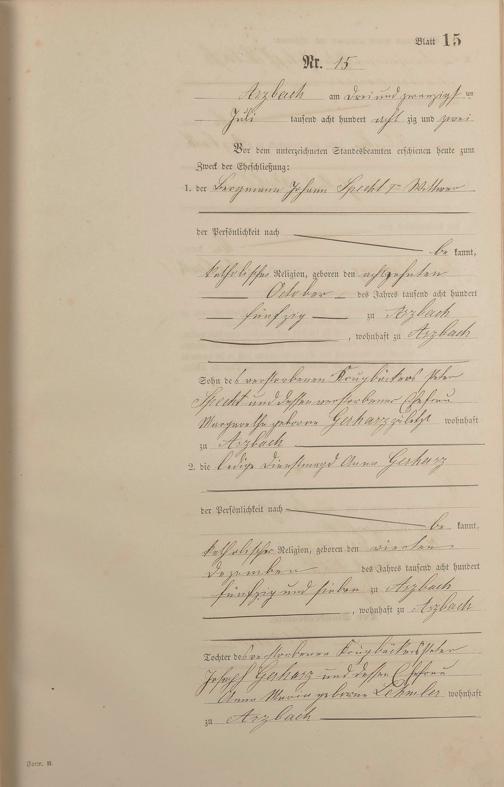 Blatt 15
Nr. 15
Arzbach am drei und zwanzigsten
Juli tausend acht hundert achtzig und zwei
Vor dem unterzeichneten Standesbeamten erschienen heute zum
Zweck der Eheschließung:
1. der Bergmann Johann Specht Wittwer
der Persönlichkeit nach
be kannt,
katholischer Religion, geboren den achtzehnten
October des Jahres tausend acht hundert
fünfzig zu Arzbach
, wohnhaft zu Arzbach
Sohn des verstorbenen Krugbäckers Peter
Specht und dessen verstorbener Ehefrau
Margarethe geborne Gerharz zuletzt wohnhaft
zu Arzbach
2. die ledige Dienstmagd Anna Gerharz
der Persönlichkeit nach
be kannt,
katholischer Religion, geboren den vierten
Dezember des Jahres tausend acht hundert
fünfzig und sieben zu Arzbach
, wohnhaft zu Arzbach
Tochter des verstorbenen Krugbäckers Peter
Joseph Gerharz und dessen Ehefrau
Anna Maria geborne Lehmler wohnhaft
zu Arzbach
Form. B.